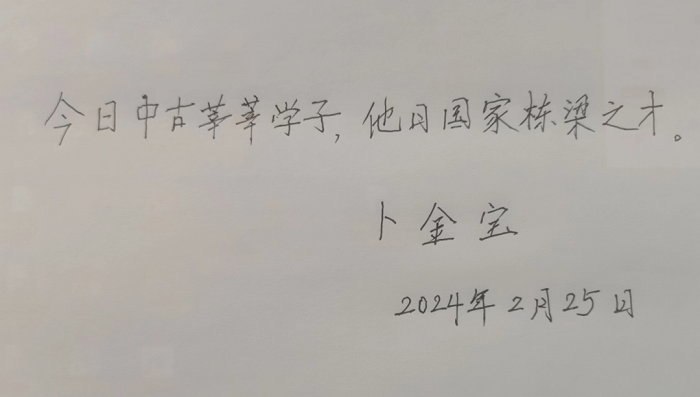 今日中古莘莘学子,他日国家栋梁之才。
卜金宝
2024年2月25日